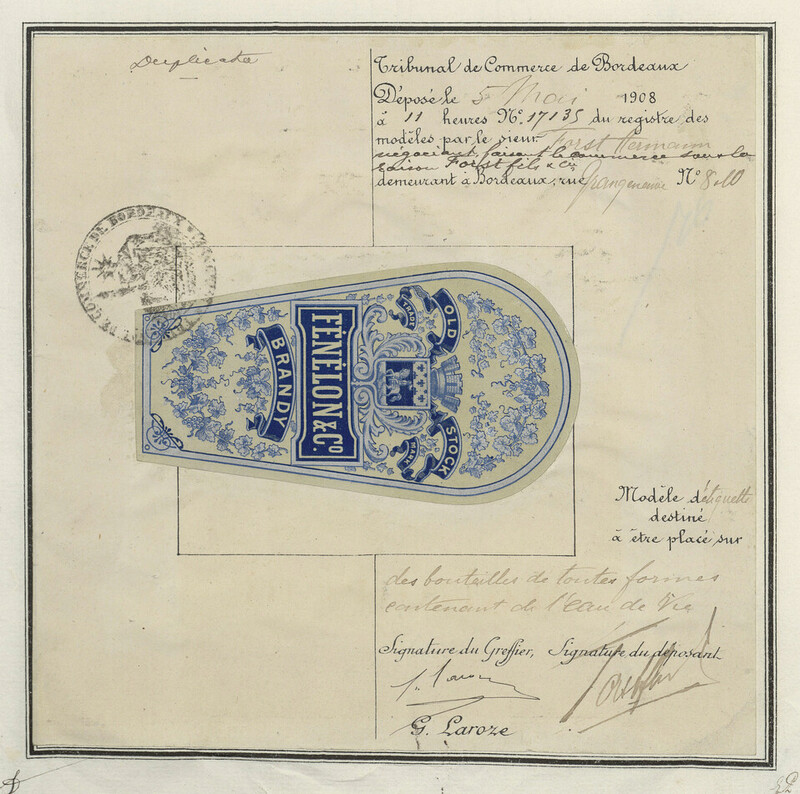 Duplicata
Tribunal de Commerce de Bordeaux
Déposé le 5 Mai 1908
à 11 heures N° 17135 du registre des
modèles par le sieur Forst Hermann
négociant, faisant le commerce sous la
raison Forst fils & Cie
demeurant à Bordeaux, rue Grangeneuve N° 8-10
DE COMMERCE DE BORDEAUX
OLD STOCK
TRADE MARK
FÉNÉLON & Co.
BRANDY
Modèle d'étiquette
destiné
à être placé sur
des bouteilles de toutes formes
contenant de l'eau de Vie
Signature du Greffier, Signature du déposant
G. Laroze